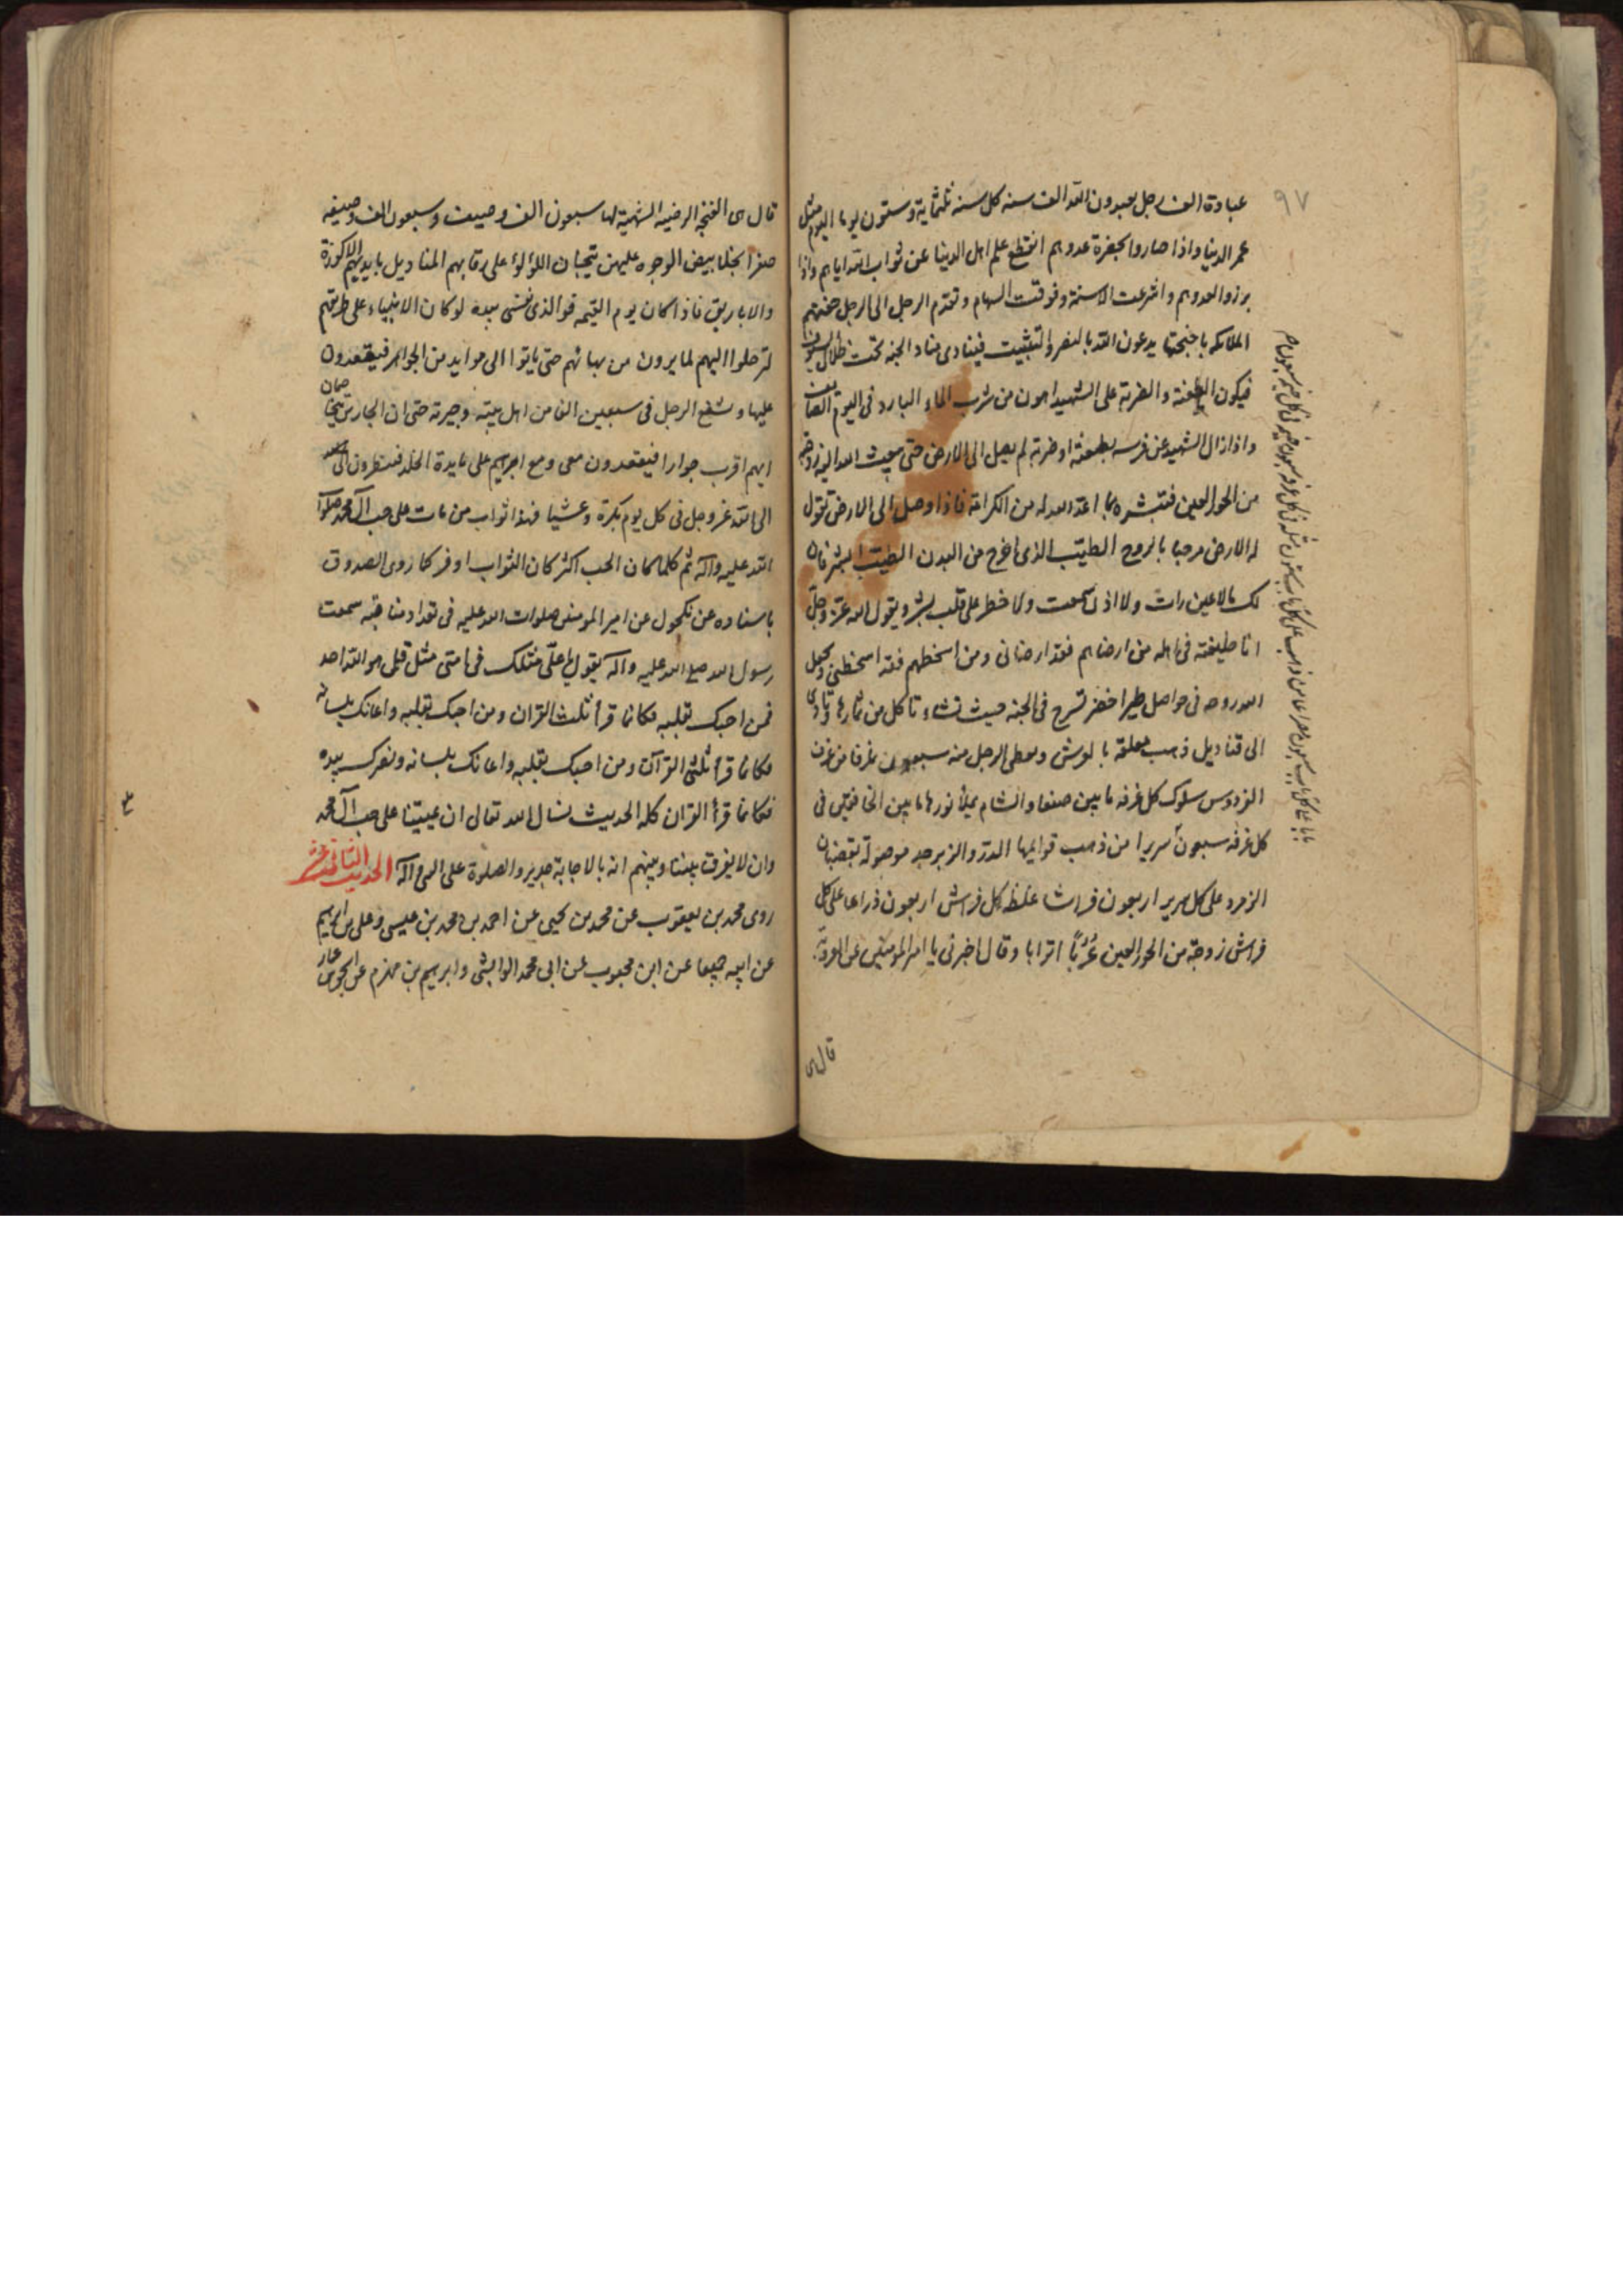 ٩٧
عبادة الف رجل يعبدون الله الف سنه كل سنه ثلثماية وستون يوما اليوم مثل
عمر الدنيا واذا صاروا بحضرة عدوهم انقطع علم اهل الدنيا عن ثواب الله اياهم واذا
برزوا لعدوهم واشرعت الاسنة وفوقت السهام وتقدم الرجل الى الرجل حفتهم
الملائكه باجنحتها يدعون الله بالنصر والتثبيت فينادى مناد الجنه تحت ظلال السيوف
فيكون الطعنة والضربة على الشهيد اهون من شرب الماء البارد فى اليوم الصايف
واذا زال الشهيد عن فرسه بطعنة او ضربة لم يصل الى الارض حتى يبعث الله اليه زوجته
من الحور العين فتبشره بما اعد الله له من الكرامة فاذا وصل الى الارض تقول
له الارض مرحبا بالروح الطيّب الذى اخرج من البدن الطيّب ابشر فان
لك ما لا عين رات ولا اذن سمعت ولا خطر على قلب بشر ويقول الله عزّ وجلّ
انا خليفته فى اهله من ارضاهم فقد ارضانى ومن اسخطهم فقد اسخطنى ويجعل
الله روحه فى حواصل طير اخضر تسرح فى الجنه حيث تشاء تاكل من ثمارها وتاوى
الى قناديل ذهب معلقة بالعرش ويعطى الرجل منه سبعون غرفا من غرف
الفردوس سلوك كل غرفه ما بين صنعا والشام يملأ نورها ما بين الخافقين فى
كل غرفه سبعون سريرا من ذهب قوايمها الدرّ والزبرجد موصولة بقضبان
الزمرد على كل سرير اربعون فراشا غلظ كل فراش اربعون ذراعا على كل
فراش زوجة من الحور العين عُرُباً اترابا وقال اخبرنى يا امير المؤمنين عن العروبة
قال هى
قال هى الغنجه الرضيه الشهية لها سبعون الف وصيف وسبعون الف وصيفه
صفر الحلى بيض الوجوه عليهن تيجان اللؤلؤ على رقابهم المناديل بايديهم الاكوزة
والاباريق فاذا كان يوم القيمه فو الذى نفسى بيده لو كان الانبياء على طريقهم
لترجلوا اليهم لما يرون من بهائهم حتى ياتوا الى موايد من الجواهر فيقعدون
عليها ويشفع الرجل فى سبعين الفا من اهل بيته وجيرته حتى ان الجارين يختصمان
ايهم اقرب جوارا فيقعدون معى ومع ابرهيم على مايدة الخلد فينظرون
الى الله عزوجل فى كل يوم بكرة وعشيا فهذا ثواب من مات على حب ال محمد صلوات
الله عليه وآله ثم كلما كان الحب اكثر كان الثواب اوفر كما روى الصدوق
باسناده عن مكحول عن امير المؤمنين صلوات الله عليه فى تعداد مناقبه سمعت
رسول الله صلى الله عليه وآله يقول يا على مثلك فى امتى مثل قل هو الله احد
فمن احبك بقلبه فكانما قرأ ثلث القران ومن احبك بقلبه واعانك بلسانه
فكانما قرأ ثلثى القرآن ومن احبك بقلبه واعانك بلسانه ونصرك بيده
فكانما قرأ القران كله الحديث نسال الله تعالى ان يميتنا على حب آل محمد
وان لا يفرق بيننا وبينهم انه بالاجابة جدير والصلوة على النبى وآله الحديث الثانى عشر
روى محمد بن يعقوب عن محمد بن يحيى عن احمد بن محمد بن عيسى وعلى بن ابرهيم
عن ابيه جميعا عن ابن محبوب عن ابى محمد الوابشى وابرهيم بن مهزم عن اسحق بن عمار